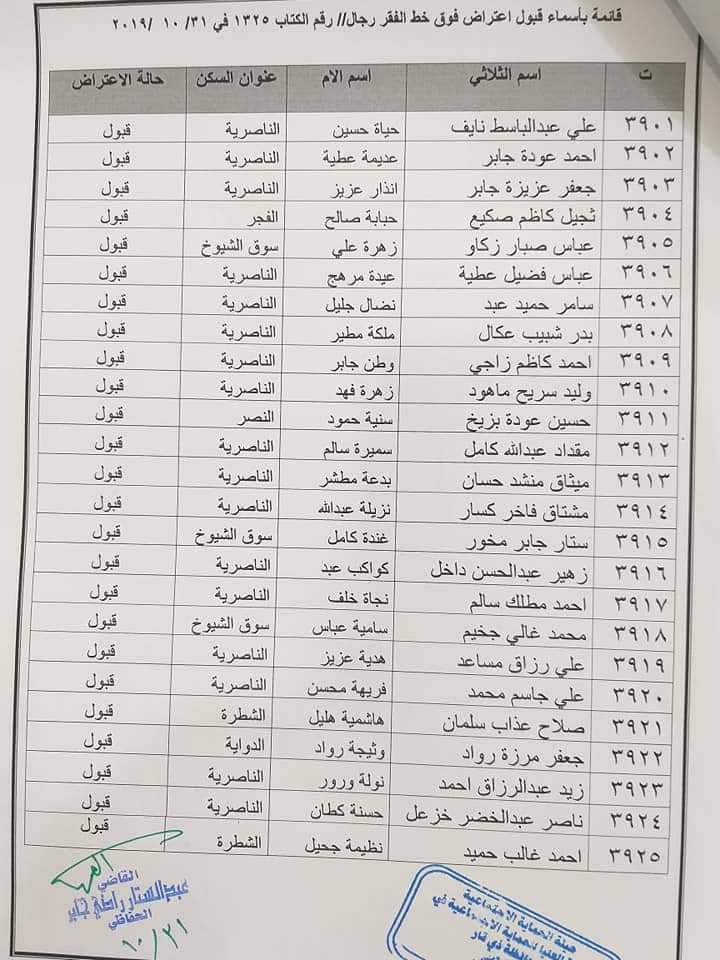 قائمة بأسماء قبول اعتراض فوق خط الفقر رجال// رقم الكتاب ١٣٢٥ في ٣١/ ١٠ /٢٠١٩
ت اسم الثلاثي اسم الام عنوان السكن حالة الاعتراض
٣٩٠١ علي عبدالباسط نايف حياة حسين الناصرية قبول
٣٩٠٢ احمد عودة جابر عديمة عطية الناصرية قبول
٣٩٠٣ جعفر عزيزة جابر انذار عزيز الناصرية قبول
٣٩٠٤ ثجيل كاظم صكبع حبابة صالح الفجر قبول
٣٩٠٥ عباس صبار زكاو زهرة علي سوق الشيوخ قبول
٣٩٠٦ عباس فضيل عطية عيدة مرهج الناصرية قبول
٣٩٠٧ سامر حميد عبد نضال جليل الناصرية قبول
٣٩٠٨ بدر شبيب عكال ملكة مطير الناصرية قبول
٣٩٠٩ احمد كاظم زاجي وطن جابر الناصرية قبول
٣٩١٠ وليد سريح ماهود زهرة فهد الناصرية قبول
٣٩١١ حسين عودة بزيخ سنية حمود النصر قبول
٣٩١٢ مقداد عبدالله كامل سميرة سالم الناصرية قبول
٣٩١٣ ميثاق منشد حسان بدعة مطشر الناصرية قبول
٣٩١٤ مشتاق فاخر كسار نزيلة عبدالله الناصرية قبول
٣٩١٥ ستار جابر مخور غندة كامل سوق الشيوخ قبول
٣٩١٦ زهير عبدالحسن داخل كواكب عبد الناصرية قبول
٣٩١٧ احمد مطلك سالم نجاة خلف الناصرية قبول
٣٩١٨ محمد غالي جخيم سامية عباس سوق الشيوخ قبول
٣٩١٩ علي رزاق مساعد هدية عزيز الناصرية قبول
٣٩٢٠ علي جاسم محمد فريهة محسن الناصرية قبول
٣٩٢١ صلاح عذاب سلمان هاشمية هليل الشطرة قبول
٣٩٢٢ جعفر مرزة رواد وثيجة رواد الدواية قبول
٣٩٢٣ زيد عبدالرزاق احمد نولة ورور الناصرية قبول
٣٩٢٤ ناصر عبدالخضر خزعل حسنة كطان الناصرية قبول
٣٩٢٥ احمد غالب حميد نظيمة جحيل الشطرة قبول
القاضي
عبدالستار راضي جابر
الخفاجي
١٠/٣١
هيئة الحماية الاجتماعية
العليا للحماية الاجتماعية في
ذي قار